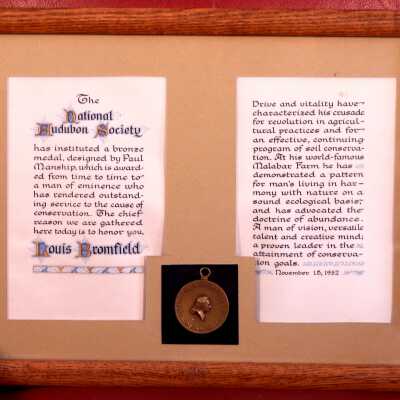 The
National
Audubon Society
has instituted a bronze
medal, designed by Paul
Manship, which is award-
ed from time to time to
a man of eminence who
has rendered outstand-
ing service to the cause of
conservation. The chief
reason we are gathered
here today is to honor you,
Louis Bromfield
Drive and vitality have
characterized his crusade
for revolution in agricul-
tural practices and for
an effective, continuing
program of soil conserva-
tion. At his world-famous
Malabar Farm he has
demonstrated a pattern
for man's living in har-
mony with nature on a
sound ecological basis;
and has advocated the
doctrine of abundance.
A man of vision, versatile
talent and creative mind;
a proven leader in the
attainment of conserva-
tion goals.
November 18, 1952